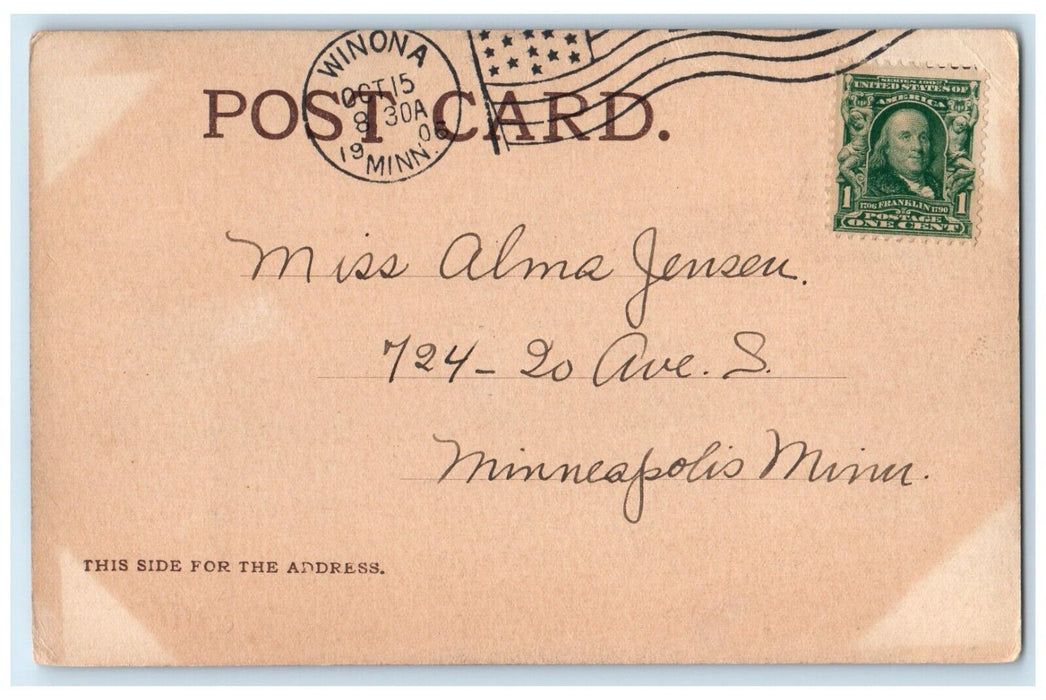 WINONA
OCT 15
8 30A
1906
MINN.
POST CARD.
SERIES 1902
UNITED STATES OF
AMERICA
1 1706 FRANKLIN 1790 1
POSTAGE
ONE CENT
Miss Alma Jensen.
724 - 20 Ave. S.
Minneapolis Minn.
THIS SIDE FOR THE ADDRESS.